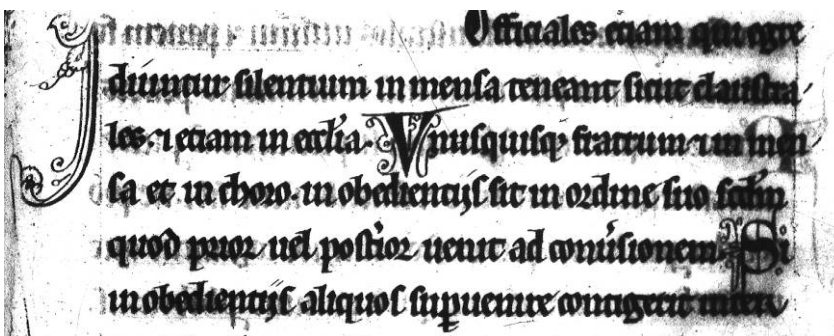 Officiales etiam qui egre
diuntur silentium in mensa teneant sicut claustra
les. ⁊ etiam in ecclīa. Vnusquisqꝫ fratrum ⁊ in men
sa et in choro. in obedientijs sit in ordine suo scdm̄
quod prior uel postior uenit ad conuīsionem. Si
in obedientijs aliquos suꝑuenire contigerit inter